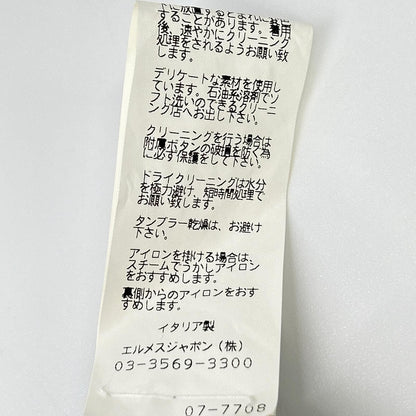 トに放置するとまれに変色
することがあります。着用
後、速やかにクリーニング
処理をされるようお願い致
します。
デリケートな素材を使用し
ています。石油系溶剤でソ
フト洗いのできるクリーニ
ング店へお出し下さい。
クリーニングを行う場合は
附属ボタンの破損を防ぐ為
に必ず保護をして下さい。
ドライクリーニングは水分
を極力避け、短時間処理で
お願い致します。
タンブラー乾燥は、お避け
下さい。
アイロンを掛ける場合は、
スチームでうかしアイロン
をおすすめします。
裏側からのアイロンをおす
すめします。
イタリア製
エルメスジャポン(株)
03-3569-3300
07-7708